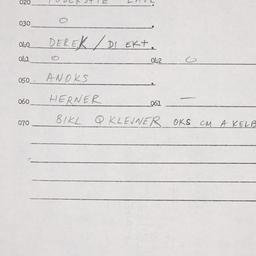 020
030 O
040 DEREK / DI EKT.
041 O 042 O
050 ANOKS
060 HERNER 061 —
070 BIKL Q KLEINER OKS CM A KELB